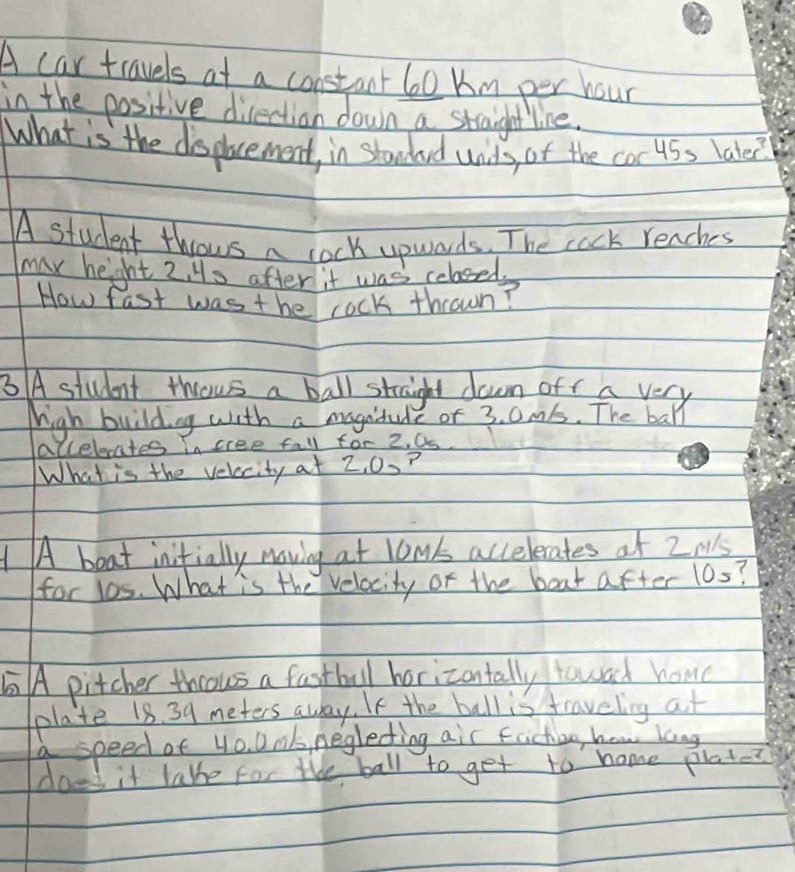 A car travels at a constant 60 Km per hour
in the positive direction down a straight line.
What is the displacement, in standard units, of the car 45s later?
A student throws a rock upwards. The rock reaches
max height 2.4s after it was released.
How fast was the rock thrown?
3 A student throws a ball straight down off a very
high building with a magnitude of 3.0m/s. The ball
accelerates in free fall for 2.0s.
What is the velocity at 2.0s?
A boat initially moving at 10m/s accelerates at 2m/s
for 10s. What is the velocity of the boat after 10s?
5 A pitcher throws a fastball horizontally toward home
plate 18.39 meters away. If the ball is traveling at
a speed of 40.0m/s, neglecting air friction, how long
does it take for the ball to get to home plate?